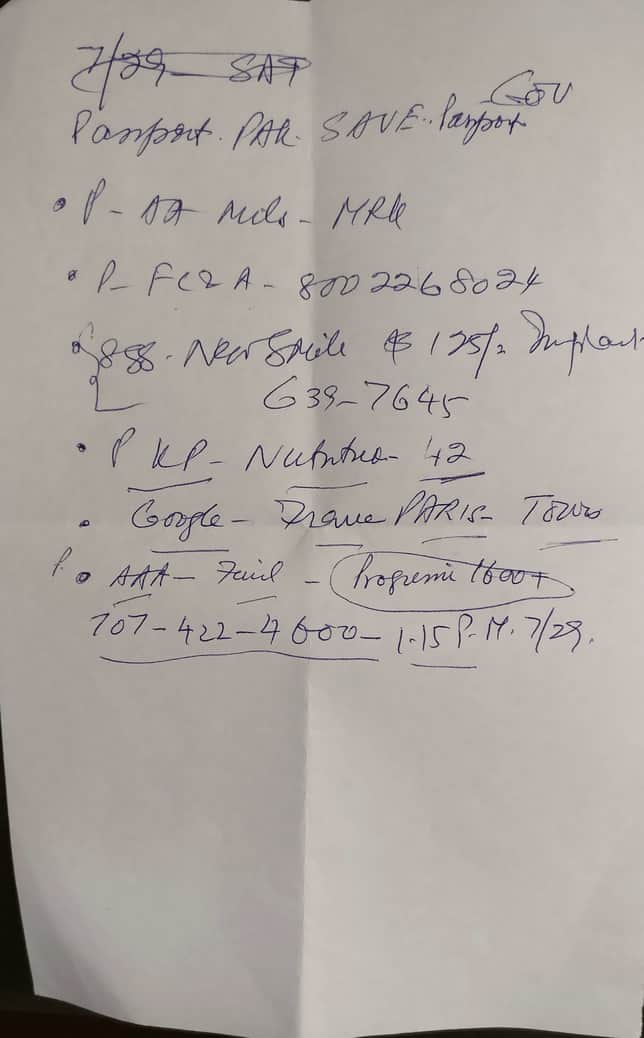 7/29 - SAT
GOV
Passport. PAK. SAVE.. Passport
• P - AA Mils - MRK
• P - FC&A - 800 2268024
• 888 - New Smile $ 125/2 Implant
639-7645
• P KP - Nutrition - 42
• Google - France PARIS - Tours
P. • AAA - Fuil - Progremi 1600+
707-422-4600 - 1.15 P.M. 7/29.